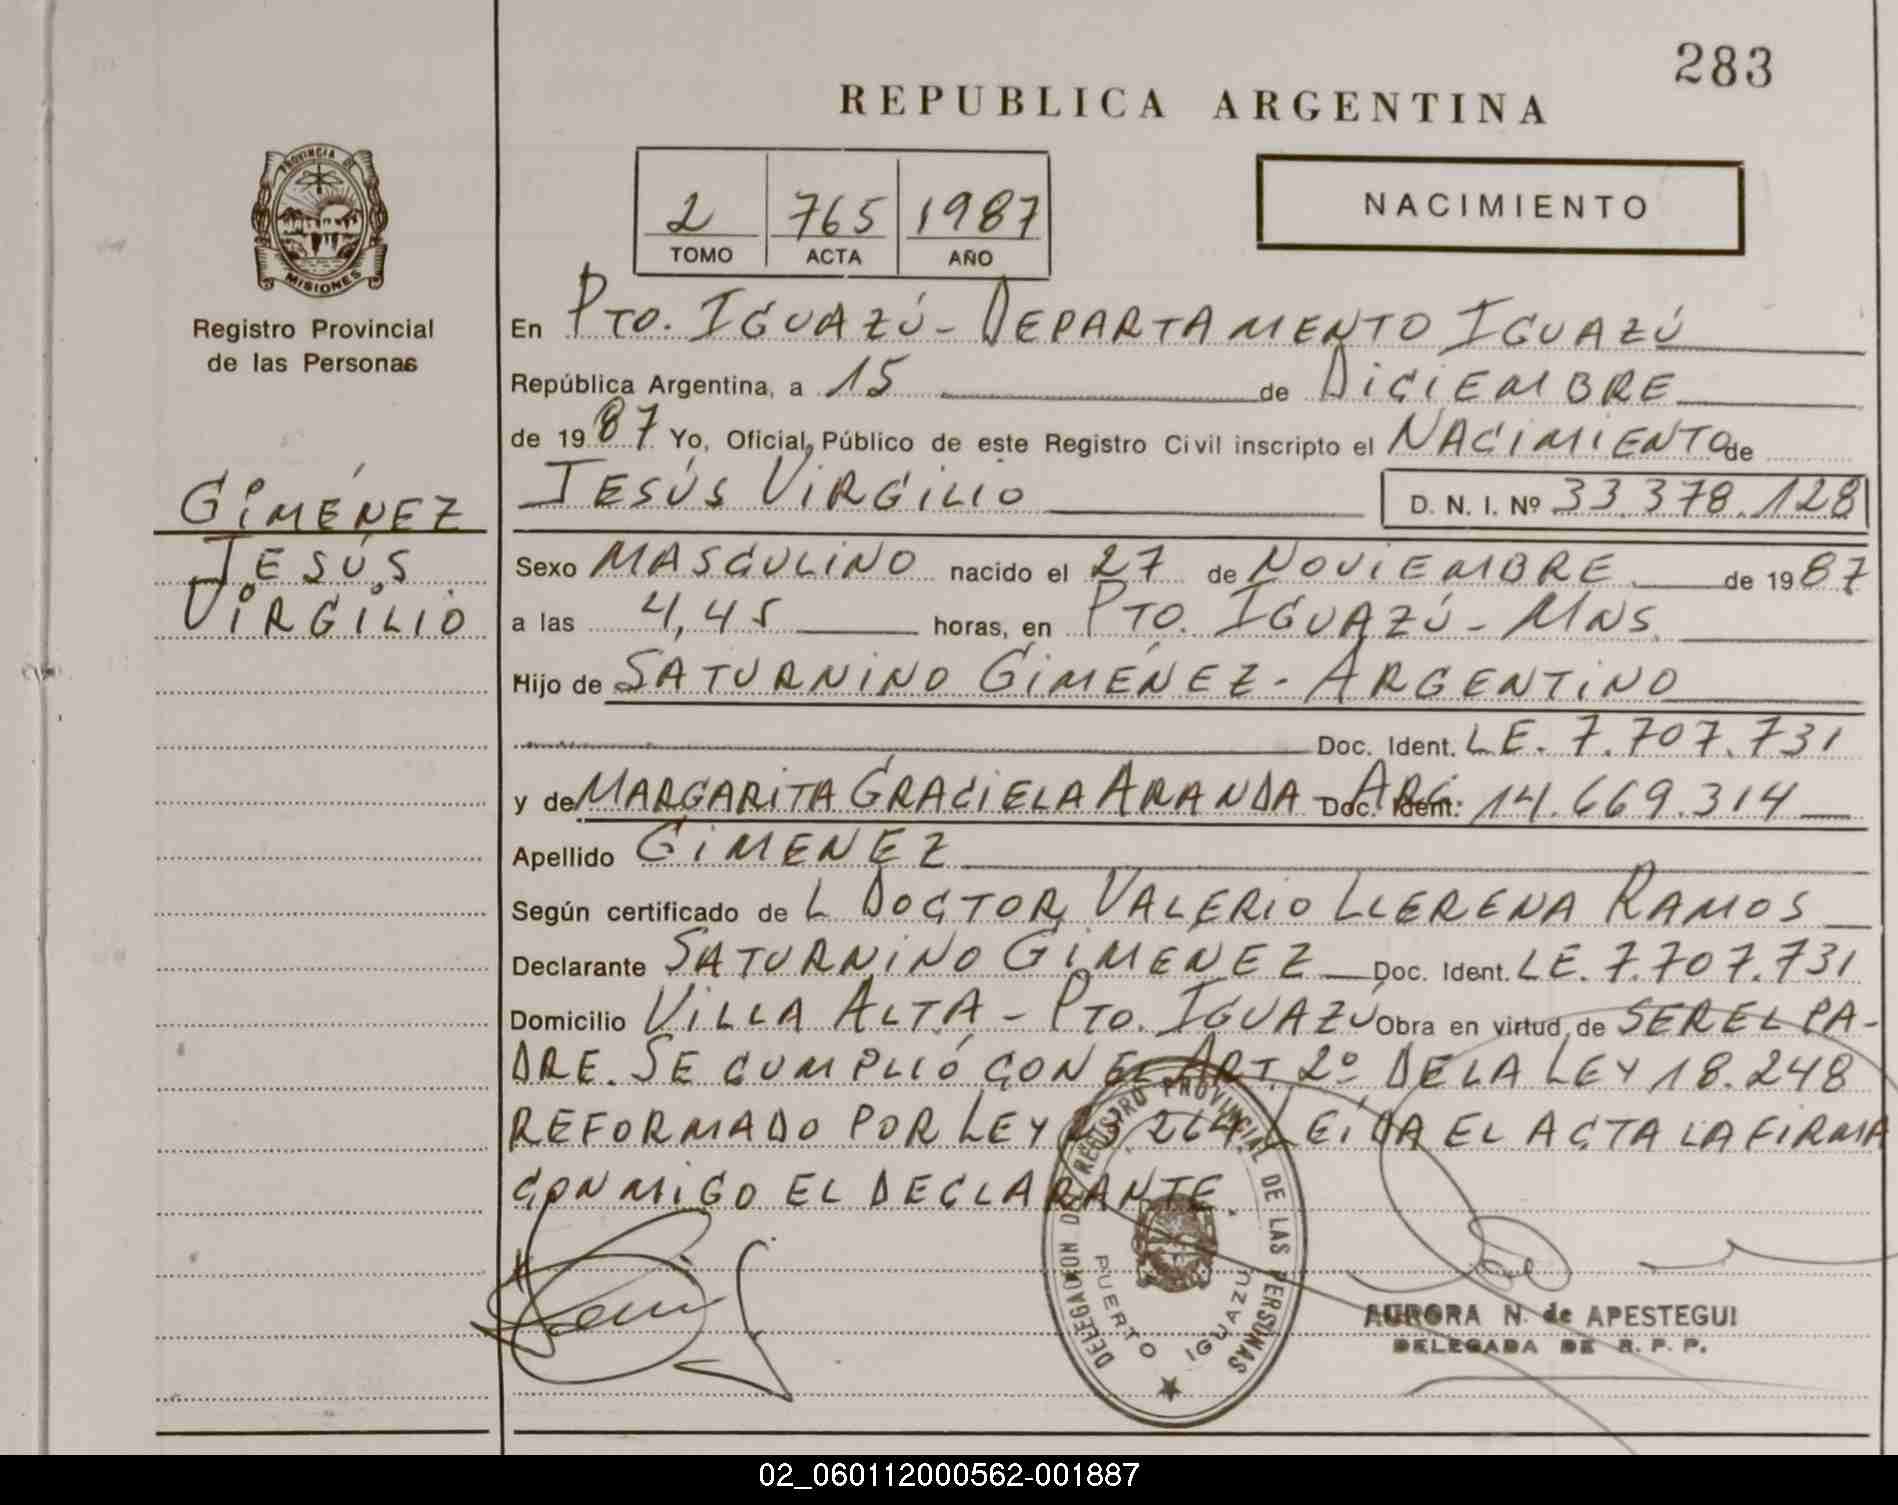 283
REPUBLICA ARGENTINA
PROVINCIA DE
MISIONES
Registro Provincial
de las Personas
2 765 1987
TOMO ACTA AÑO
NACIMIENTO
En PTO. IGUAZÚ - DEPARTAMENTO IGUAZÚ
República Argentina, a 15 de DICIEMBRE
de 1987 Yo, Oficial Público de este Registro Civil inscripto el NACIMIENTO de
JESÚS VIRGILIO D. N. I. Nº 33.378.128
GIMÉNEZ
JESÚS
VIRGILIO
Sexo MASCULINO nacido el 27 de NOVIEMBRE de 1987
a las 4,45 horas, en PTO. IGUAZÚ - MNS.
Hijo de SATURNINO GIMÉNEZ - ARGENTINO
Doc. Ident. LE. 7.707.731
y de MARGARITA GRACIELA ARANDA - ARG. Doc. Ident. 14.669.314
Apellido GIMENEZ
Según certificado de L DOCTOR VALERIO LLERENA RAMOS
Declarante SATURNINO GIMENEZ Doc. Ident. LE. 7.707.731
Domicilio VILLA ALTA - PTO. IGUAZÚ Obra en virtud de SER EL PA-
DRE. SE CUMPLIÓ CON EL ART. 2º DE LA LEY 18.248
REFORMADO POR LEY 23.264 LEÍDA EL ACTA LA FIRMA
CONMIGO EL DECLARANTE.
DELEGACION DEL REGISTRO PROVINCIAL DE LAS PERSONAS
PUERTO IGUAZU
AURORA N. de APESTEGUI
DELEGADA DE R. P. P.
02_060112000562-001887